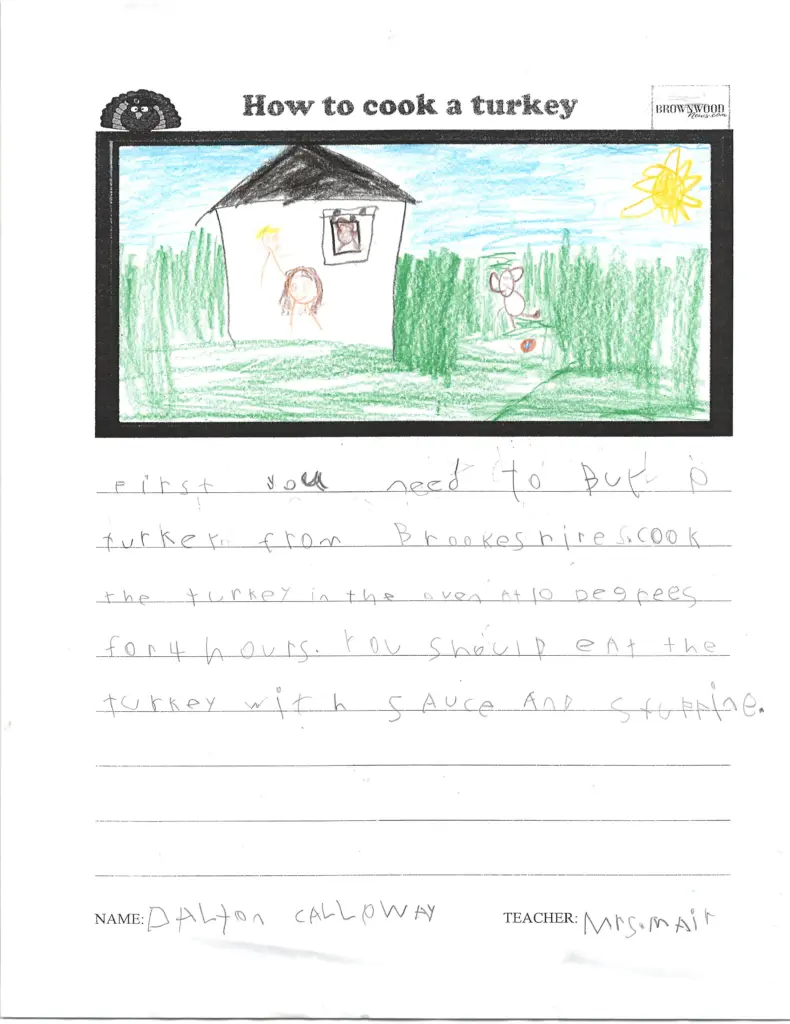 How to cook a turkey
BROWNWOOD
News.com
First you need to Buy A
turkey from Brookeshires.cook
the turkey in the oven At 10 Degrees
for 4 hours. You should eat the
turkey with SAuce AnD Stuffine.
NAME: DALton CALLOWAY
TEACHER: Mrs.mAir